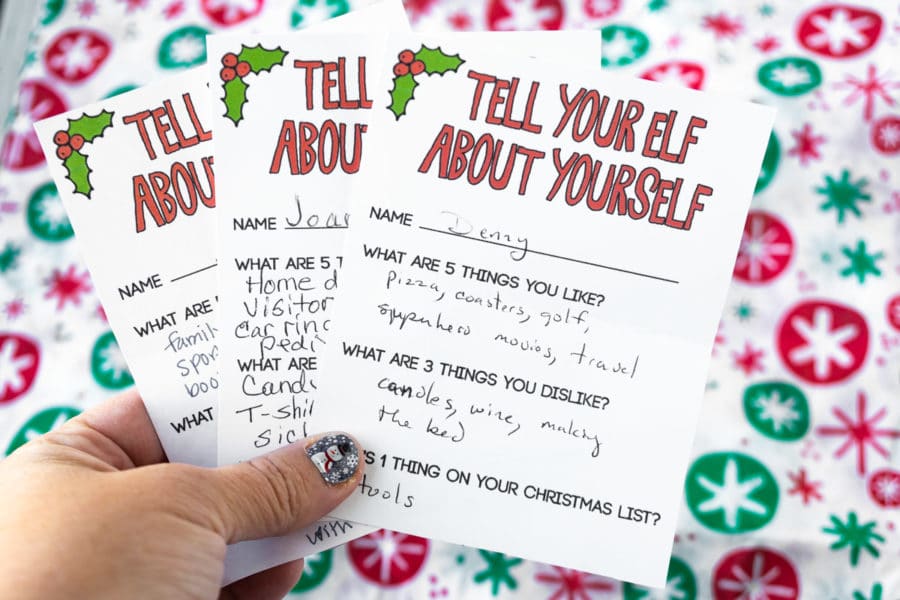 TELL
ABOU
NAME
WHAT ARE
family
spor
boo
WHAT
TELL
ABOUT
NAME Joan
WHAT ARE 5 T
Home d
Visitor
earring
pedi
WHAT ARE
Candl
T-shir
sick
with
TELL YOUR ELF
ABOUT YOURSELF
NAME Denny
WHAT ARE 5 THINGS YOU LIKE?
Pizza, coasters, golf,
superhero movies, travel
WHAT ARE 3 THINGS YOU DISLIKE?
candles, wine, making
the bed
'S 1 THING ON YOUR CHRISTMAS LIST?
tools